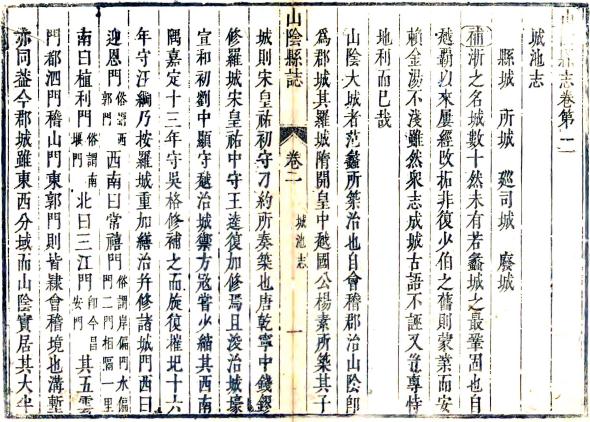 山陰縣志卷第二
城池志
縣城 所城 廵司城 廢城
補浙之名城數十然未有若蠡城之最鞏固也自
越霸以來屢經改拓非復少伯之舊則蒙業而安
賴金湯不淺雖然衆志成城古語不誣又豈專恃
地利而已哉
山陰大城者范蠡所築治也自會稽郡治山陰卽
爲郡城其羅城隋開皇中越國公楊素所築其子
城則宋皇祐初守刁約所奏築也唐乾寧中錢鏐
修羅城宋皇祐中守王逵復加修焉且浚治城壕
宣和初劉中顯守越治城禦方寇嘗少縮其西南
隅嘉定十三年守吳格修補之而旋復摧圯十六
年守汪綱乃按羅城重加繕治并修諸城門西曰
迎恩門俗謂西郭門西南曰常禧門俗謂岸偏門水偏門二門相隔一里
南曰植利門俗謂南堰門北曰三江門卽今昌安門其五雲
門都泗門稽山門東郭門則皆隸會稽境也溝塹
亦同益今郡城雖東西分域而山陰實居其大半
山陰縣誌
卷二
城池志
一